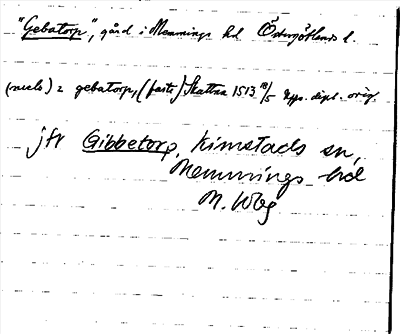 "Gebatorp", gård i Memmings hd Östergötlands l.
(neclo) 2 gebatorp, (faste) Skattna 1513 18/5 Upps. dipl. orig.
jfr Gibbetorp, Kimstads sn,
Memmings hd
M. Wbg